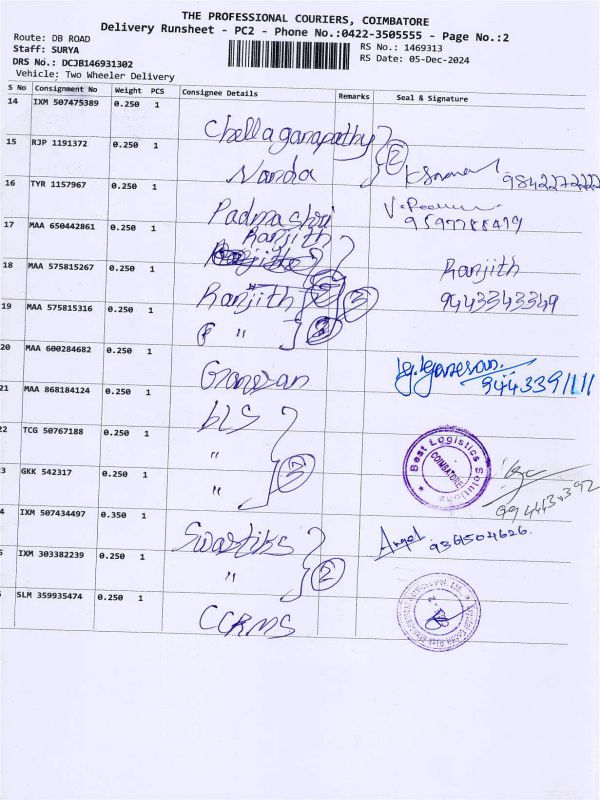 THE PROFESSIONAL COURIERS, COIMBATORE
Delivery Runsheet - PC2 - Phone No.:0422-3505555 - Page No.:2
Route: DB ROAD
RS No.: 1469313
Staff: SURYA
RS Date: 05-Dec-2024
DRS No.: DCJB146931302
Vehicle: Two Wheeler Delivery
S No Consignment No Weight PCS Consignee Details Remarks Seal & Signature
14 IXM 507475389 0.250 1 Chellaganapathy
15 RJP 1191372 0.250 1 Nanda 2
16 TYR 1157967 0.250 1 Padma shri
17 MAA 650442861 0.250 1 Ranjith
18 MAA 575815267 0.250 1 Ranjith Ranjith
19 MAA 575815316 0.250 1 " 9443343349
20 MAA 600284682 0.250 1 Ganesan
21 MAA 868184124 0.250 1 bLS
2 TCG 50767188 0.250 1 " Best Logistics Solutions COIMBATORE
3 GKK 542317 0.250 1 "
4 IXM 507434497 0.350 1 Swastiks Angel 9361504626
5 IXM 303382239 0.250 1 " 2
SLM 359935474 0.250 1 CCRMS